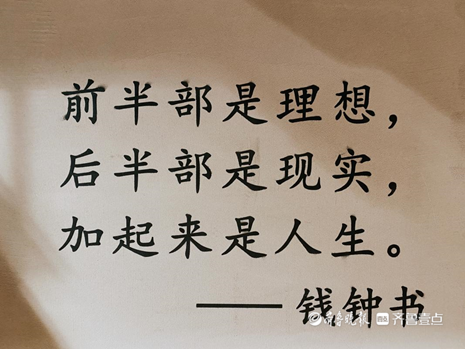 前半部是理想，
后半部是现实，
加起来是人生。
——钱钟书
齐鲁晚报 齐鲁壹点